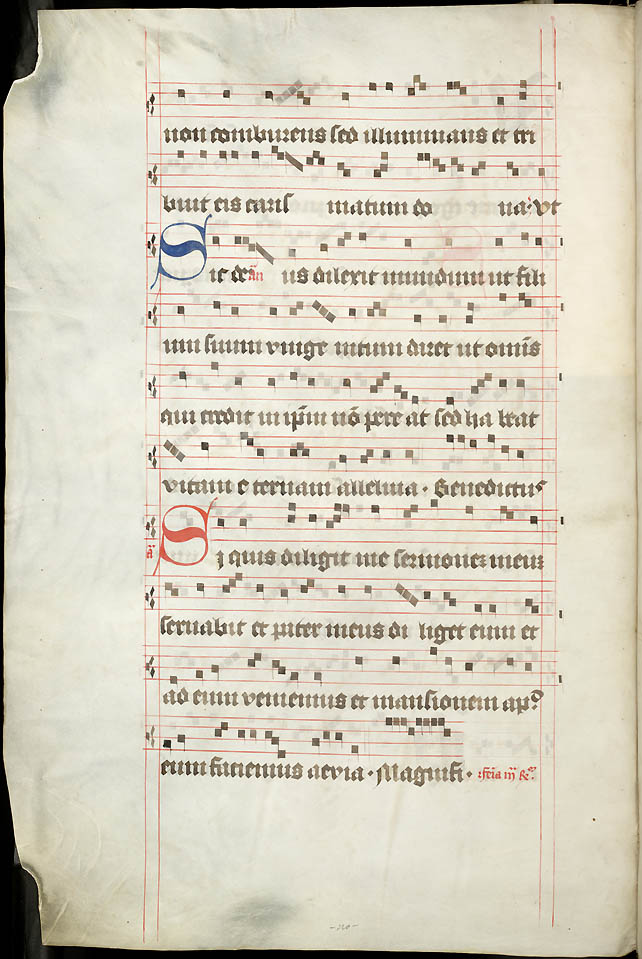 non comburens sed illuminans et tri
buit eis caris matum do na. vt
Sic de us dilexit mundum ut fili
um suum vnige nitum daret ut omnis
qui credit in ip̄m nō pere at sed ha beat
vitam e ternam alleluia. Benedictus
Si quis diligit me sermonem meum
seruabit et pater meus di liget eum et
ad eum veniemus et mansionem apꝰ
eum faciemus aevia. Magnifi. feria iij